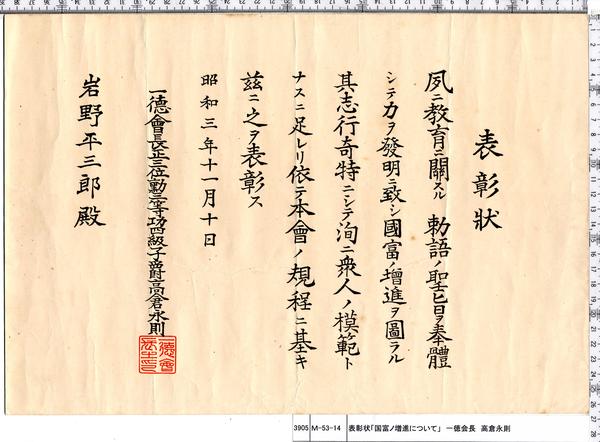 表彰状
夙ニ教育ニ關スル 勅語ノ聖旨ヲ奉體
シテ力ヲ發明ニ致シ國富ノ增進ヲ圖ラル
其志行奇特ニシテ洵ニ衆人ノ模範ト
ナスニ足レリ依テ本會ノ規程ニ基キ
玆ニ之ヲ表彰ス
昭和三年十一月十日
一德會長正三位勳三等功四級子爵高倉永則
岩野平三郎殿
3905 M-53-14 表彰状「国富ノ増進について」 一徳会長 高倉永則